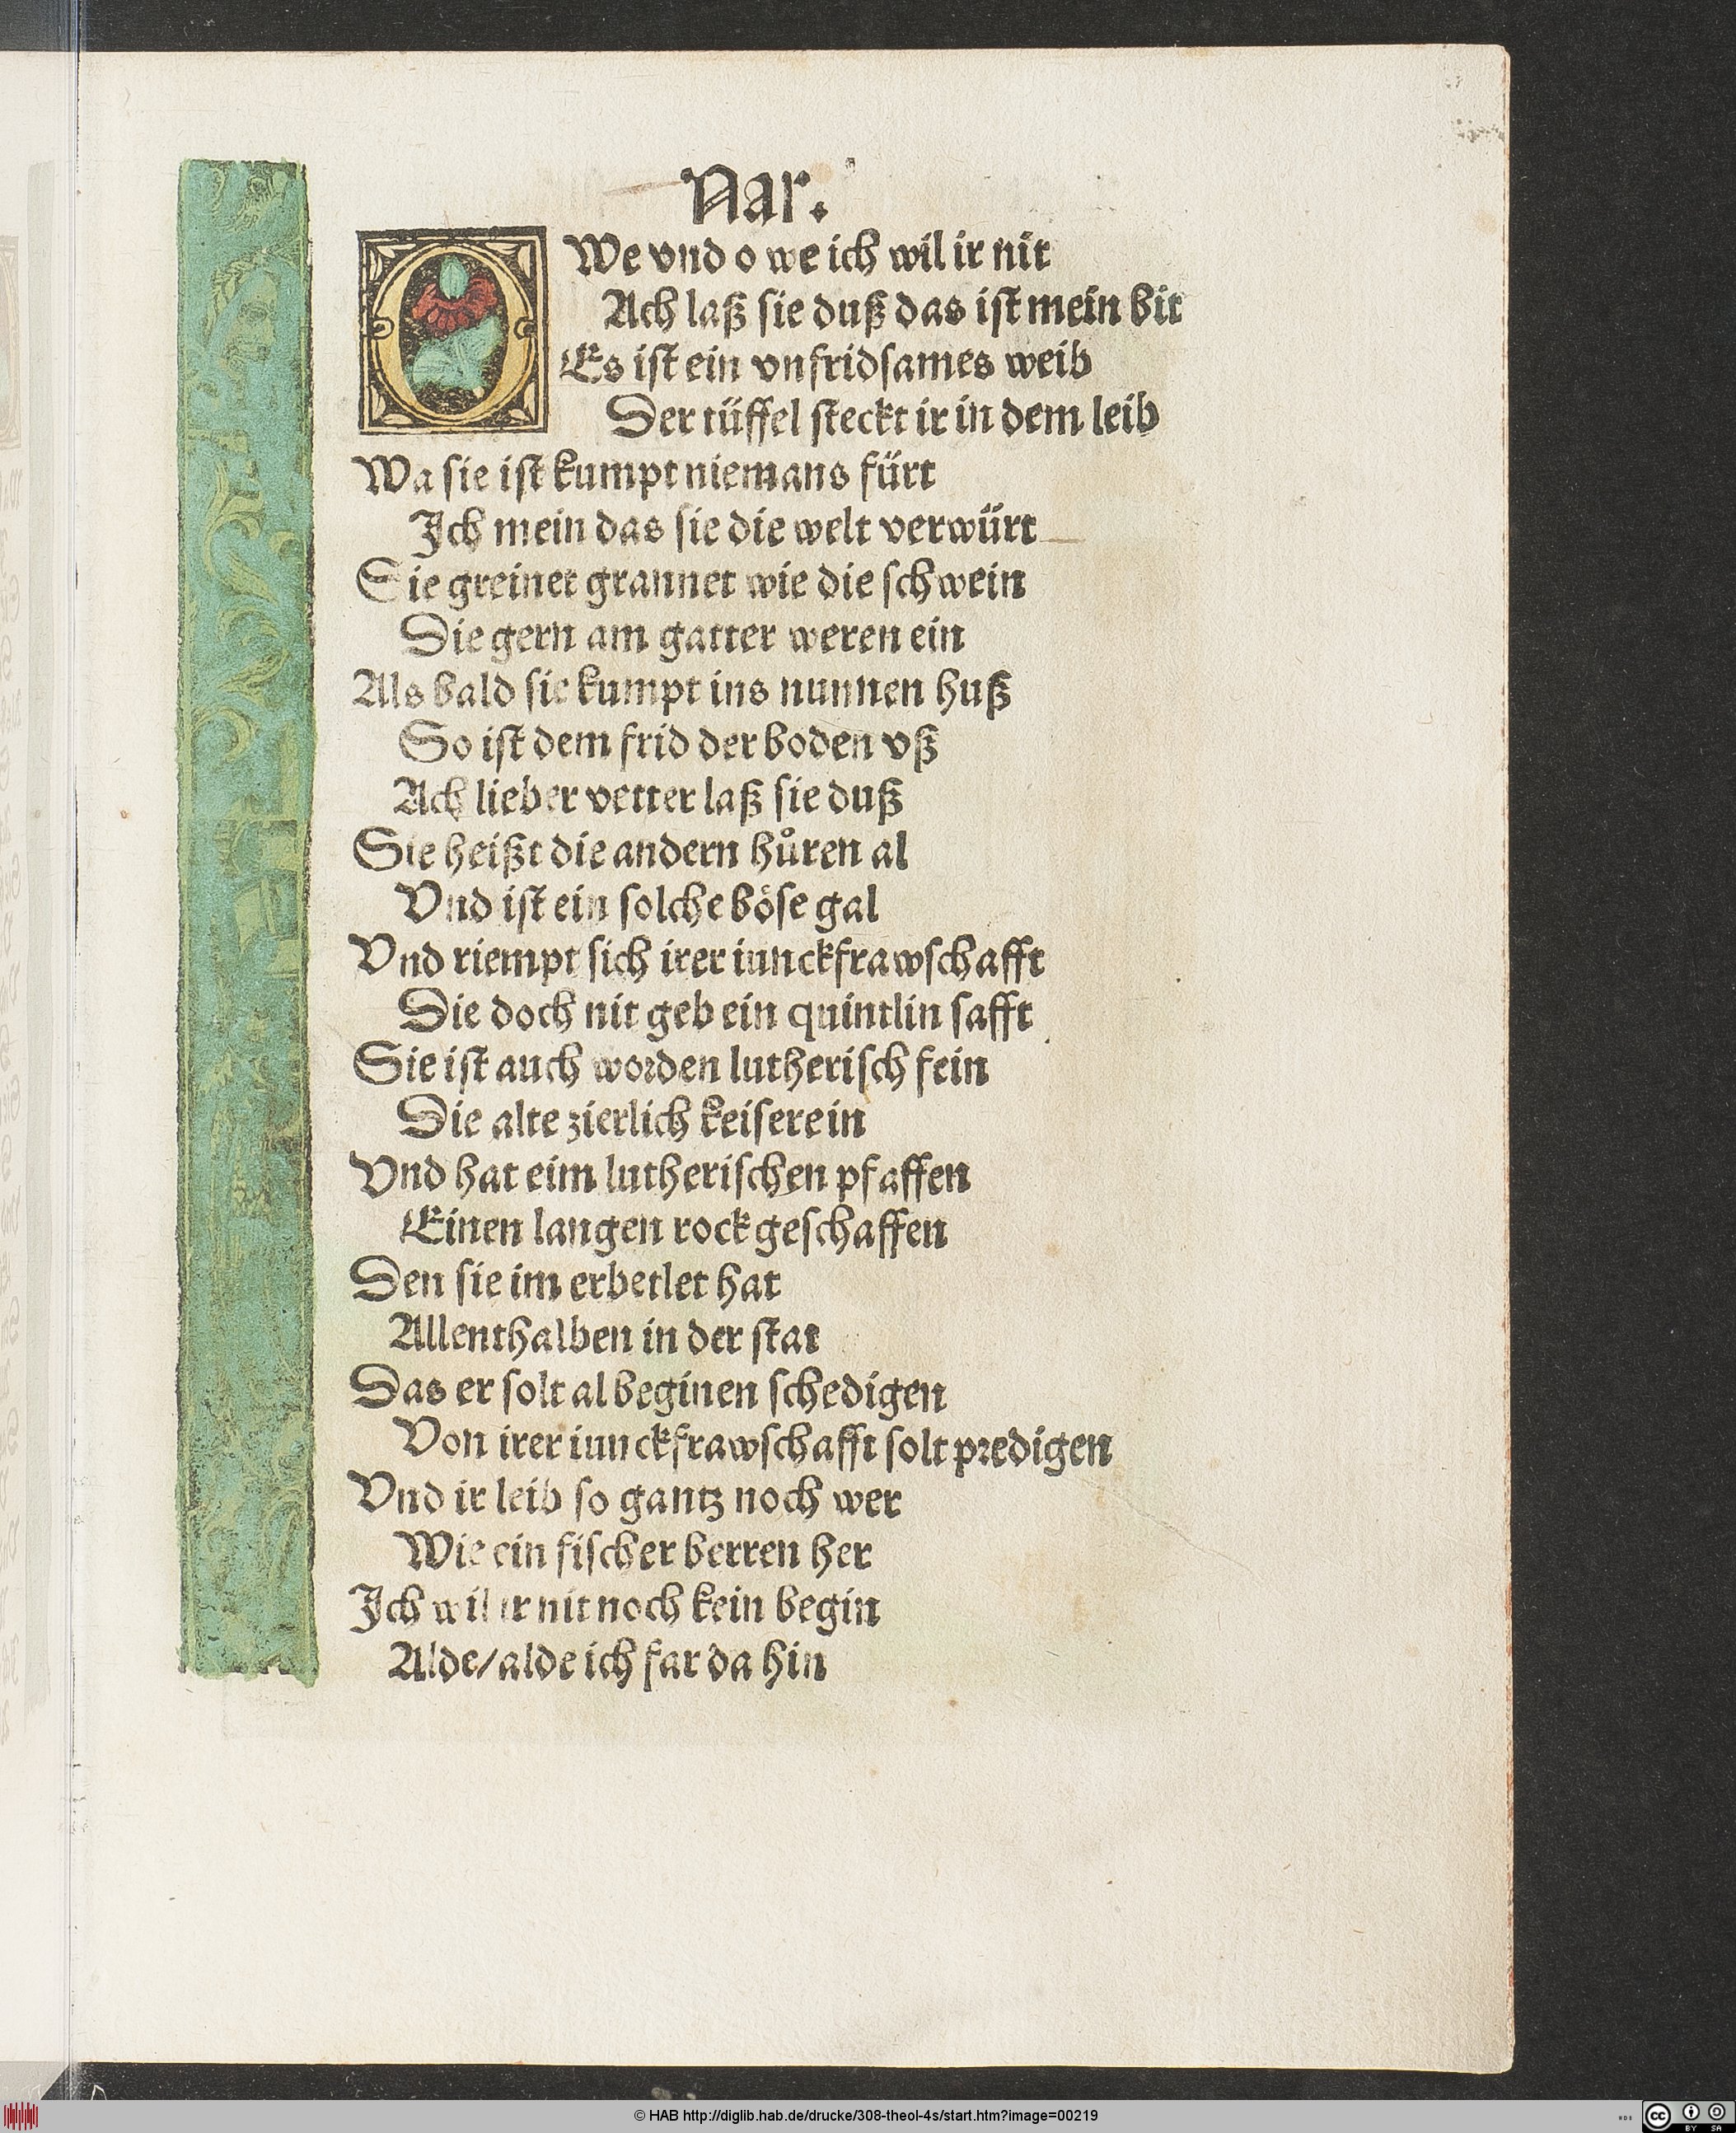 Nar.
OWe vnd o we ich wil ir nit
Ach laß sie duß das ist mein bit
Es ist ein vnfridsames weib
Der tüffel steckt ir in dem leib
Wa sie ist kumpt niemans fürt
Ich mein das sie die welt verwürt
Sie greinet grannet wie die schwein
Die gern am gatter weren ein
Als bald sie kumpt ins nunnen huß
So ist dem frid der boden vß
Ach lieber vetter laß sie duß
Sie heißt die andern hůren al
Vnd ist ein solche böse gal
Vnd riempt sich irer iunckfrawschafft
Die doch nit geb ein quintlin safft
Sie ist auch worden lutherisch fein
Die alte zierlich keiserein
Vnd hat eim lutherischen pfaffen
Einen langen rock geschaffen
Den sie im erbetlet hat
Allenthalben in der stat
Das er solt al beginen schedigen
Von irer iunckfrawschafft solt predigen
Vnd ir leib so gantz noch wer
Wie ein fischer berren her
Ich wil ir nit noch kein begin
Alde/alde ich far da hin
© HAB http://diglib.hab.de/drucke/308-theol-4s/start.htm?image=00219
cc BY SA